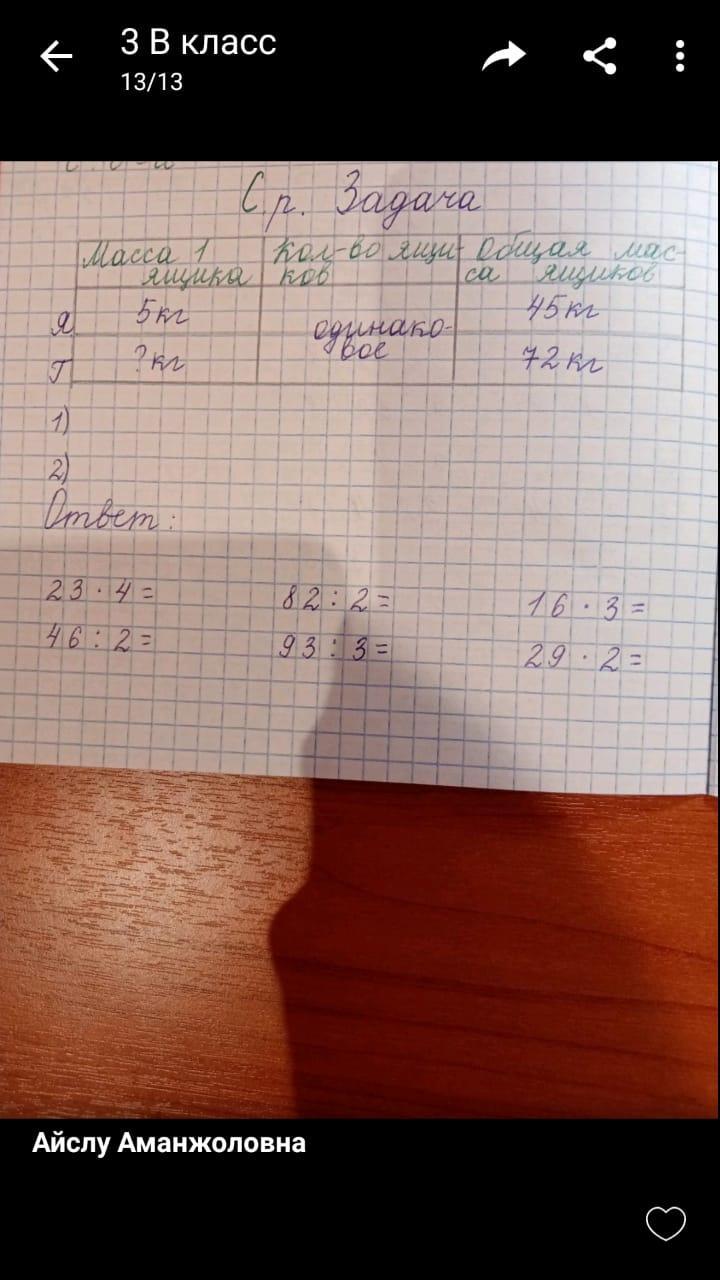 3 В класс
13/13
С.р. Задача
Масса 1 ящика
Кол-во ящиков
Общая масса ящиков
Я 5кг одинаковое 45кг
Г ?кг 72кг
1)
2)
Ответ:
23 · 4 = 82 : 2 = 16 · 3 =
46 : 2 = 93 : 3 = 29 · 2 =
Айслу Аманжоловна